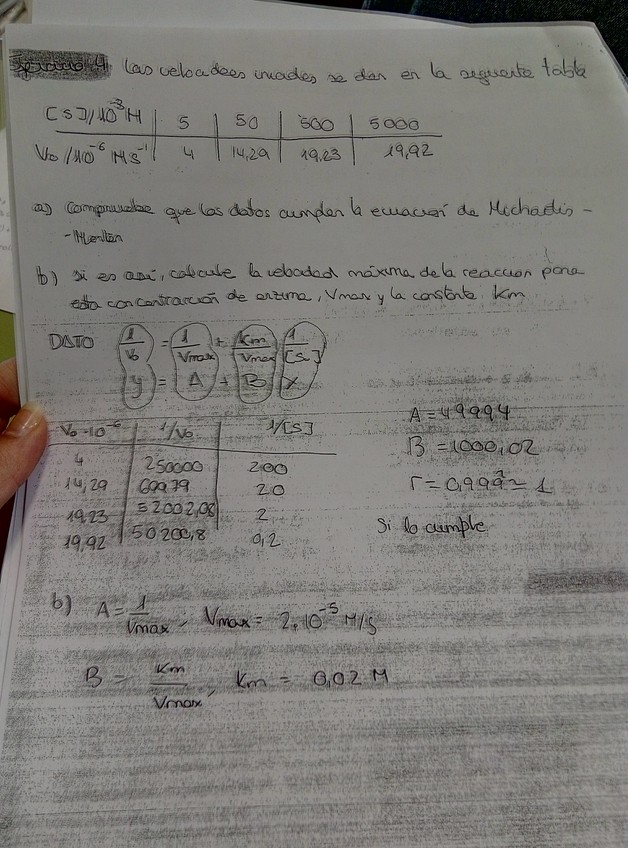 Ejercicio 4 Las velocidades iniciales se dan en la siguiente tabla
[S]/10⁻³M | 5 | 50 | 500 | 5000
V₀/10⁻⁶ M s⁻¹ | 4 | 14,29 | 19,23 | 19,92
a) Compruebe que los datos cumplen la ecuación de Michaelis -
- Menten
b) si es así, calcule la velocidad máxima de la reacción para
esta concentración de enzima, Vmax y la constante Km
DATO 1/V₀ = 1/Vmax + Km/Vmax 1/[S]
y = A + B x
V₀·10⁻⁶ | 1/V₀ | 1/[S]
4 | 250000 | 200
14,29 | 69979 | 20
19,23 | 52002,08 | 2
19,92 | 50200,8 | 0,2
A = 49994
B = 1000,02
r = 0,999 ≈ 1
Si lo cumple
b) A = 1/Vmax ; Vmax = 2·10⁻⁵ M/s
B = Km/Vmax ; Km = 0,02 M